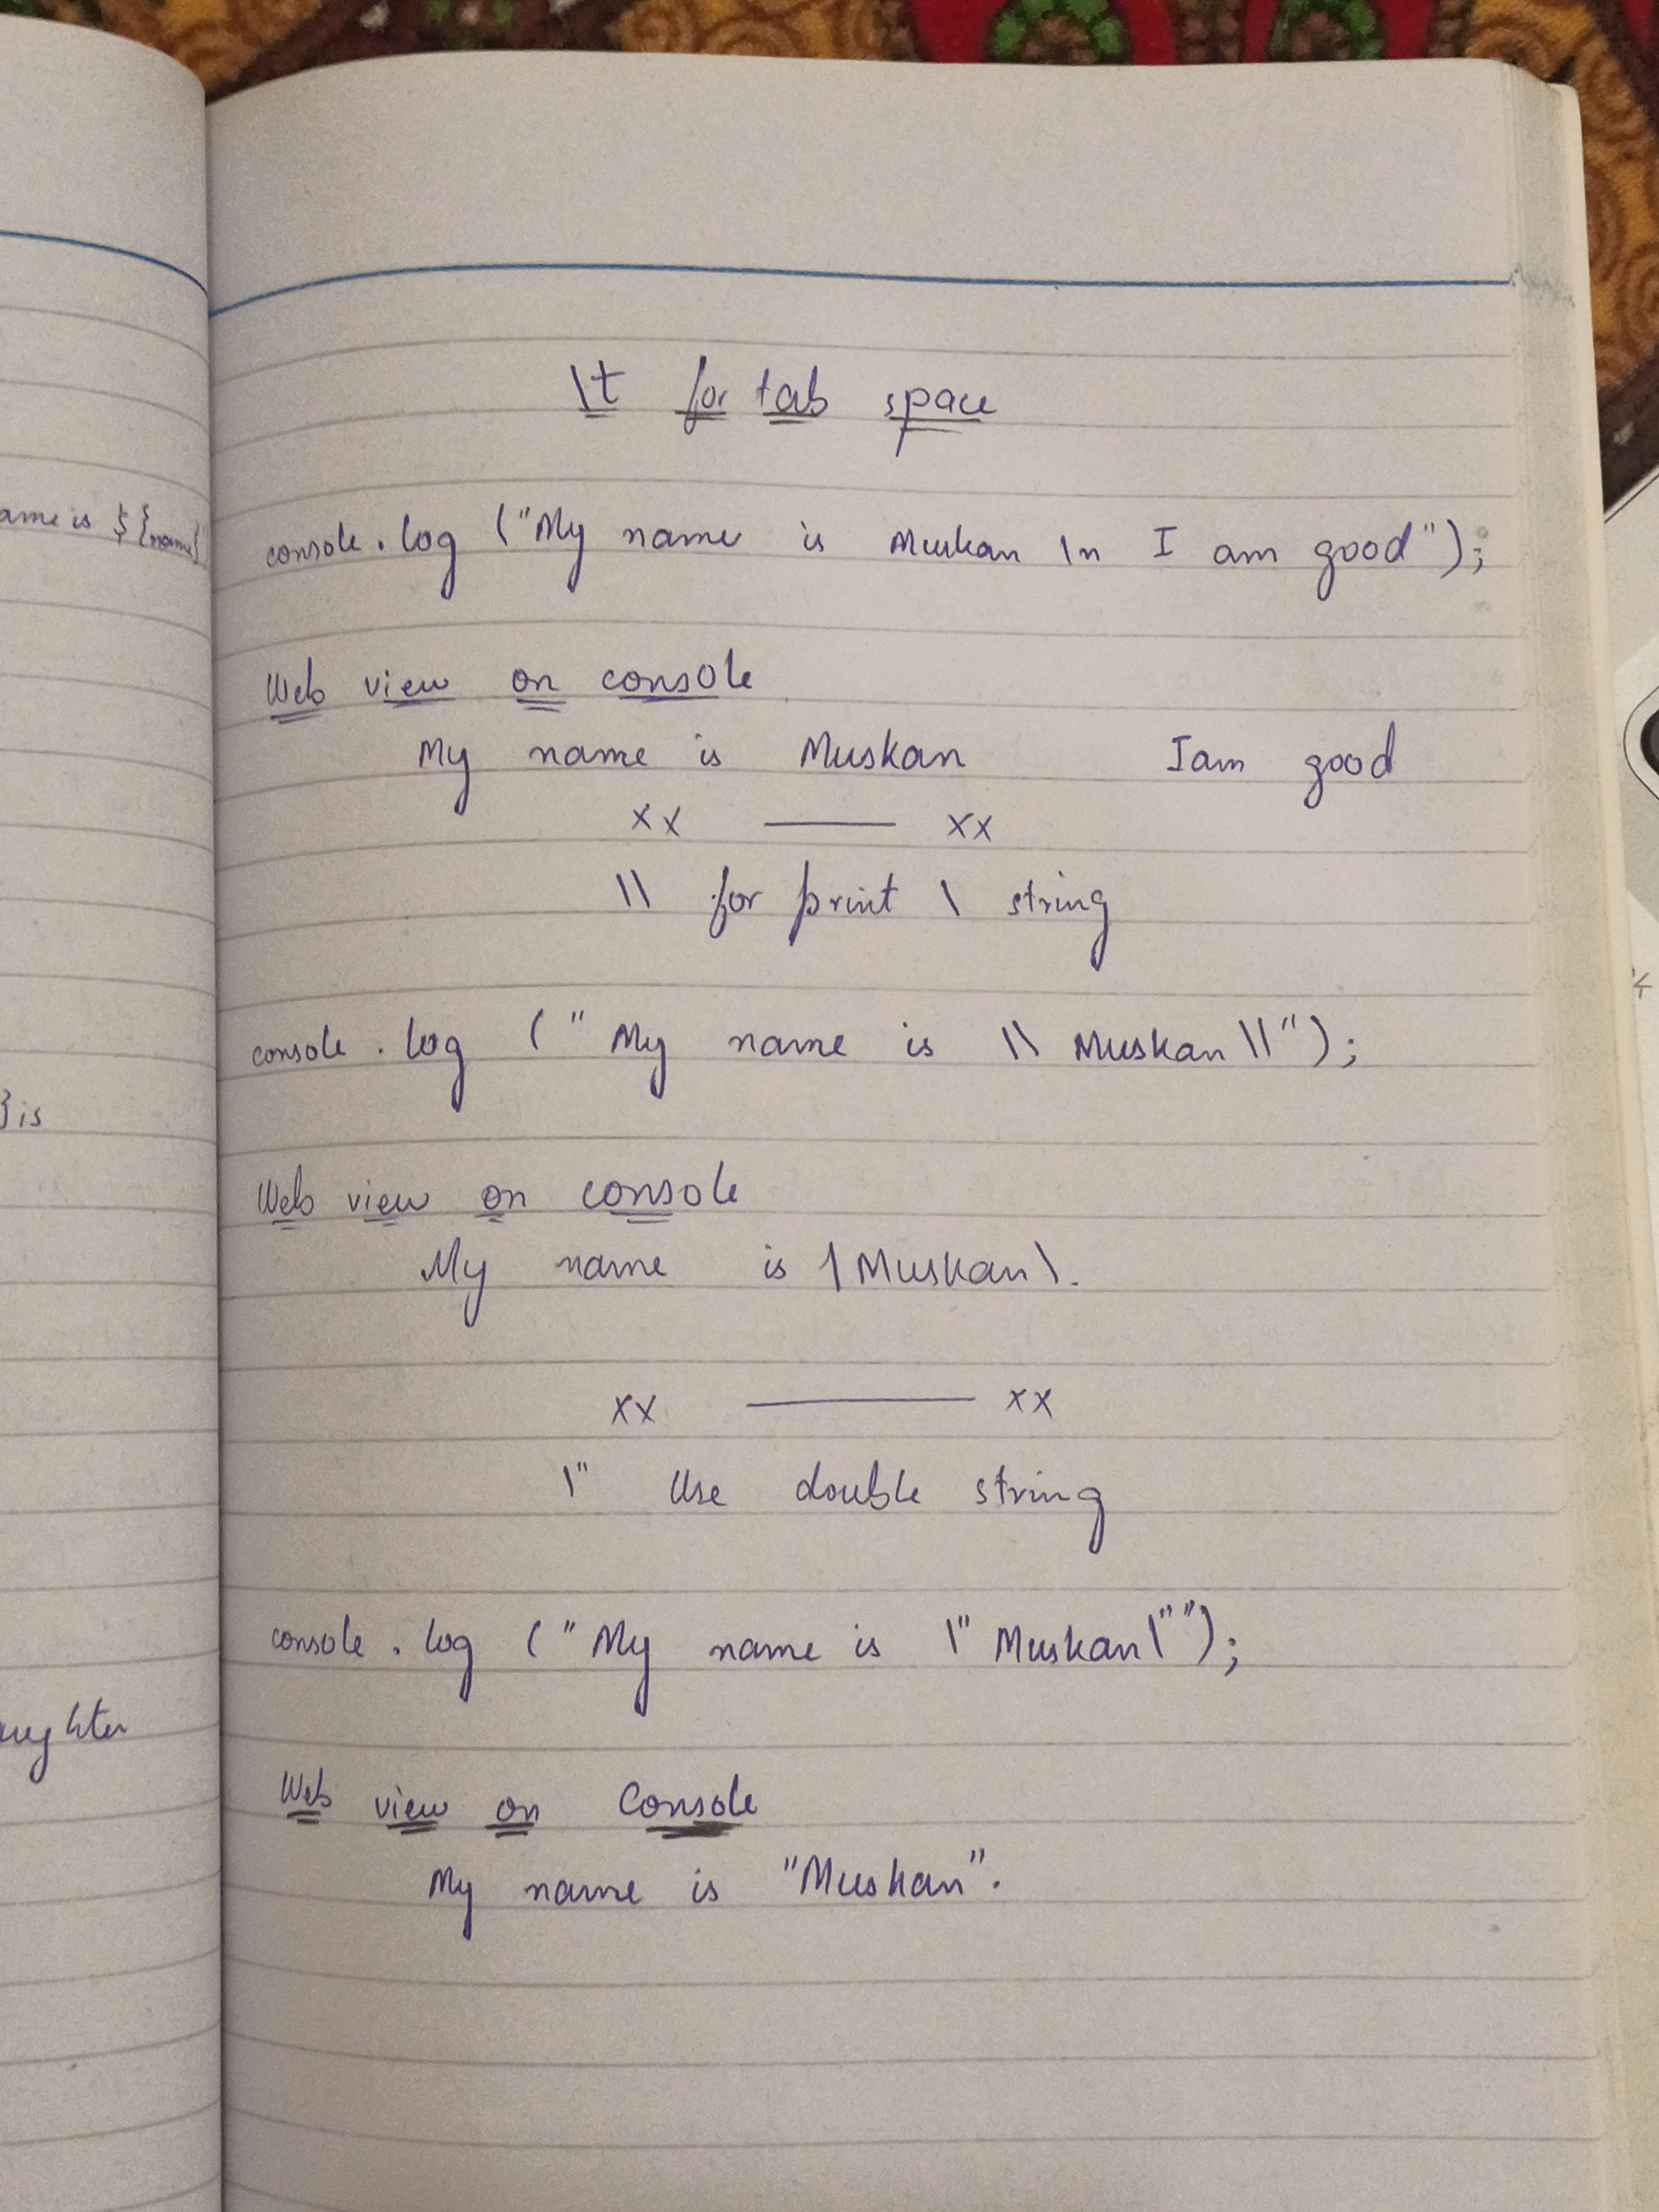 ame is ${name}
} is
ughter
\t for tab space
console.log ("My name is Muskan \n I am good");
Web view on console
My name is Muskan I am good
xx —— xx
\\ for print \ string
console.log (" My name is \\ Muskan \\");
Web view on console
My name is \Muskan\.
xx —— xx
\" Use double string
console.log ("My name is \" Muskan\"");
Web view on Console
My name is "Muskan".